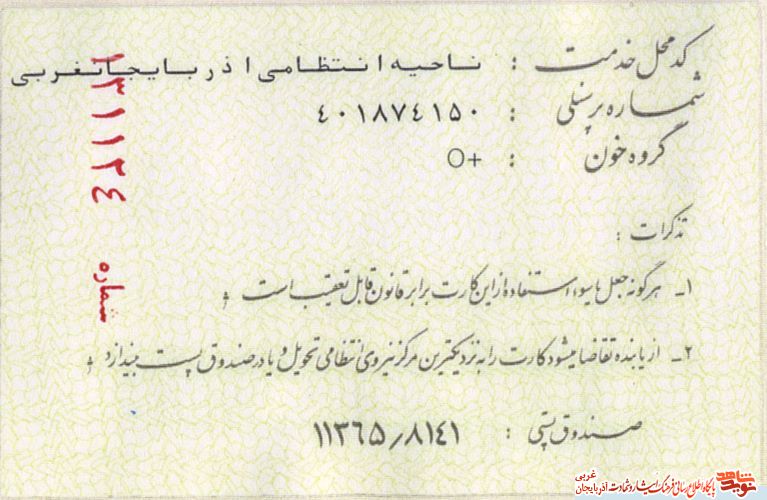 کد محل خدمت : ناحیه انتظامی اذربایجانغربی
شماره پرسنلی : ۴۰۱۸۷۴۱۵۰
گروه خون : O+
تذکرات :
۱ـ هرگونه جعل یا سوء استفاده از این کارت برابر قانون قابل تعقیب است .
۲ـ از یابنده تقاضا میشود کارت را به نزدیکترین مرکز نیروی انتظامی تحویل و یا در صندوق پست بیندازد .
صندوق پستی : ۱۱۳۶۵/۸۱۴۱
شماره ۱۳۱۱۲۴
نوید شاهد
پایگاه اطلاع رسانی فرهنگ ایثار و شهادت آذربایجان غربی